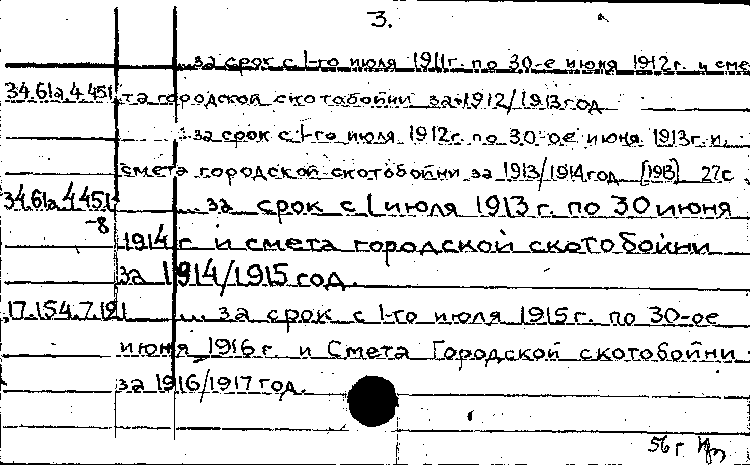 3.
... за срок с 1-го июля 1911г. по 30-е июня 1912г. и сме
34.61а.4.451 та городской скотобойни за 1912/1913 год
... за срок с 1-го июля 1912г. по 30-ое июня 1913г. и.
смета городской скотобойни за 1913/1914 год [1913] 27с.
34.61а.4.451 ... за срок с 1 июля 1913 г. по 30 июня
-8 1914 г и смета городской скотобойни
за 1914/1915 год.
17.154.7.191 ... за срок с 1-го июля 1915 г. по 30-ое
июня 1916 г. и Смета Городской скотобойни
за 1916/1917 год.
56 г